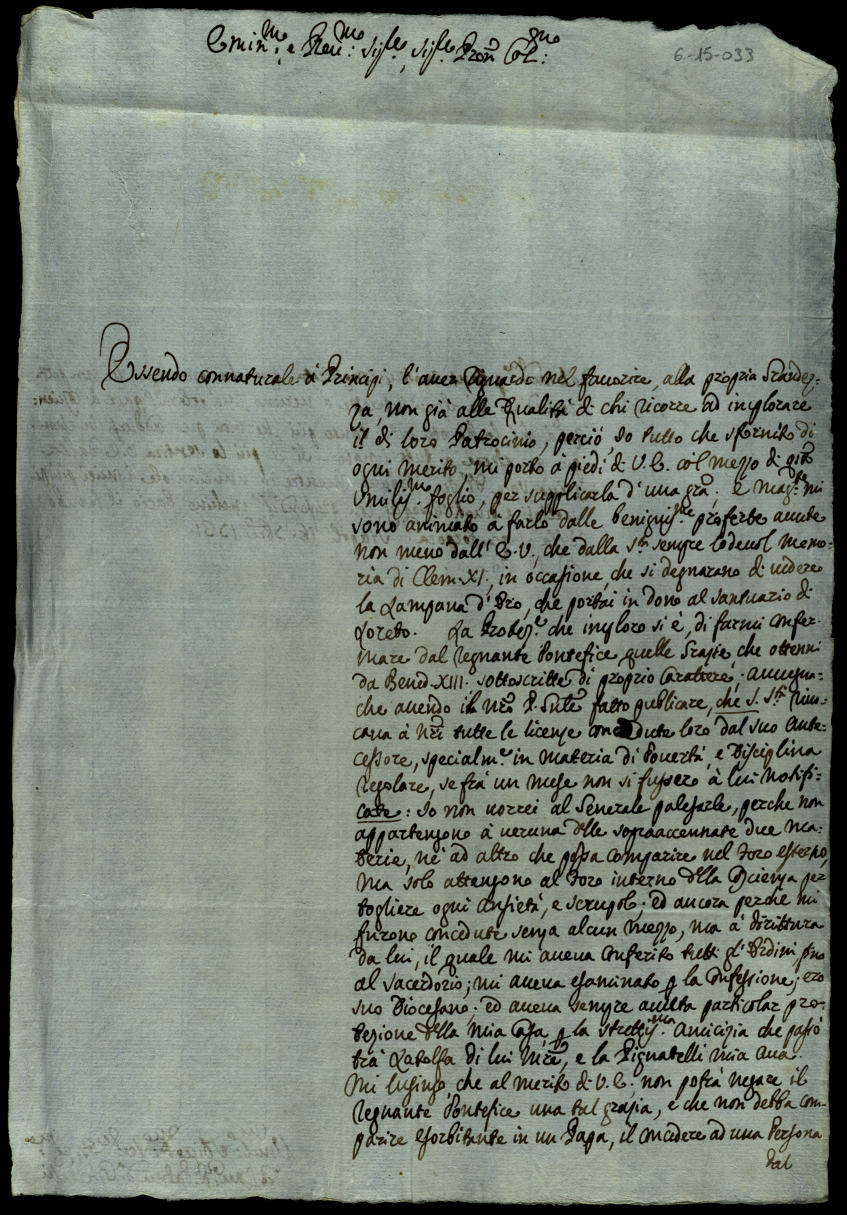 Emin.mo, e Reu.mo: Sig.re, Sig.re Pron Col.mo:
6-15-033
Essendo connaturale à Principi, l'auer riguardo nel fauorire, alla propria Grandez-
za non già alle Qualità di chi ricorre ad implorare
il di loro Patrocinio, perciò, Io tutto che sfornito di
ogni merito, mi porto à piedi di V.E. col mezzo di qsto
Umiliss.mo foglio, per supplicarla d'una gra. E mag.te mi
sono animato à farlo dalle benigniss.me proferte auute
non meno dall'E.V., che dalla S.ta sempre lodeuol memo-
ria di Clem. XI., in occasione, che si degnarano di uedere
la Lampana d'Oro, che portai in dono al Santuario di
Loreto. La Protez.e che imploro si è, di farmi confer-
mare dal regnante Pontefice quelle Grazie, che ottenni
da Bened. XIII. sottoscritte di proprio Carattere; auuegna-
che auendo il nro P. Gnle fatto publicare, che S. S.tà riuo-
caua à nri tutte le licenze concedute loro dal suo Ante-
cessore, specialm.e in materia di Pouertà, e Disciplina
regolare, se frà un mese non si fussero à lui notifi-
cate: Io non uorrei al Generale palesarle, perche non
appartengono à ueruna delle sopraaccennate due ma-
terie, nè ad altro che possa comparire nel Foro esterno,
ma solo attengono al Foro interno della Cscienza per
togliere ogni ansietà, e scrupolo; ed ancora perche mi
furono concedute senza alcun mezzo, ma à dirittura
da lui, il quale mi aueua conferito tutti gl'Ordini fino
al sacerdozio; mi aueua esaminato p la confessione; ero
suo Diocesano; ed aueua sempre auuta particolar pro-
tezione della mia Casa, p la strettiss.ma amicizia che passò
trà Ladolfa di lui Mre, e la Pignatelli mia aua.
Mi lusingo che al merito di V.E. non potrà negare il
regnante Pontefice una tal grazia, e che non debba com-
parire esorbitante in un Papa, il concedere ad una Persona
dal